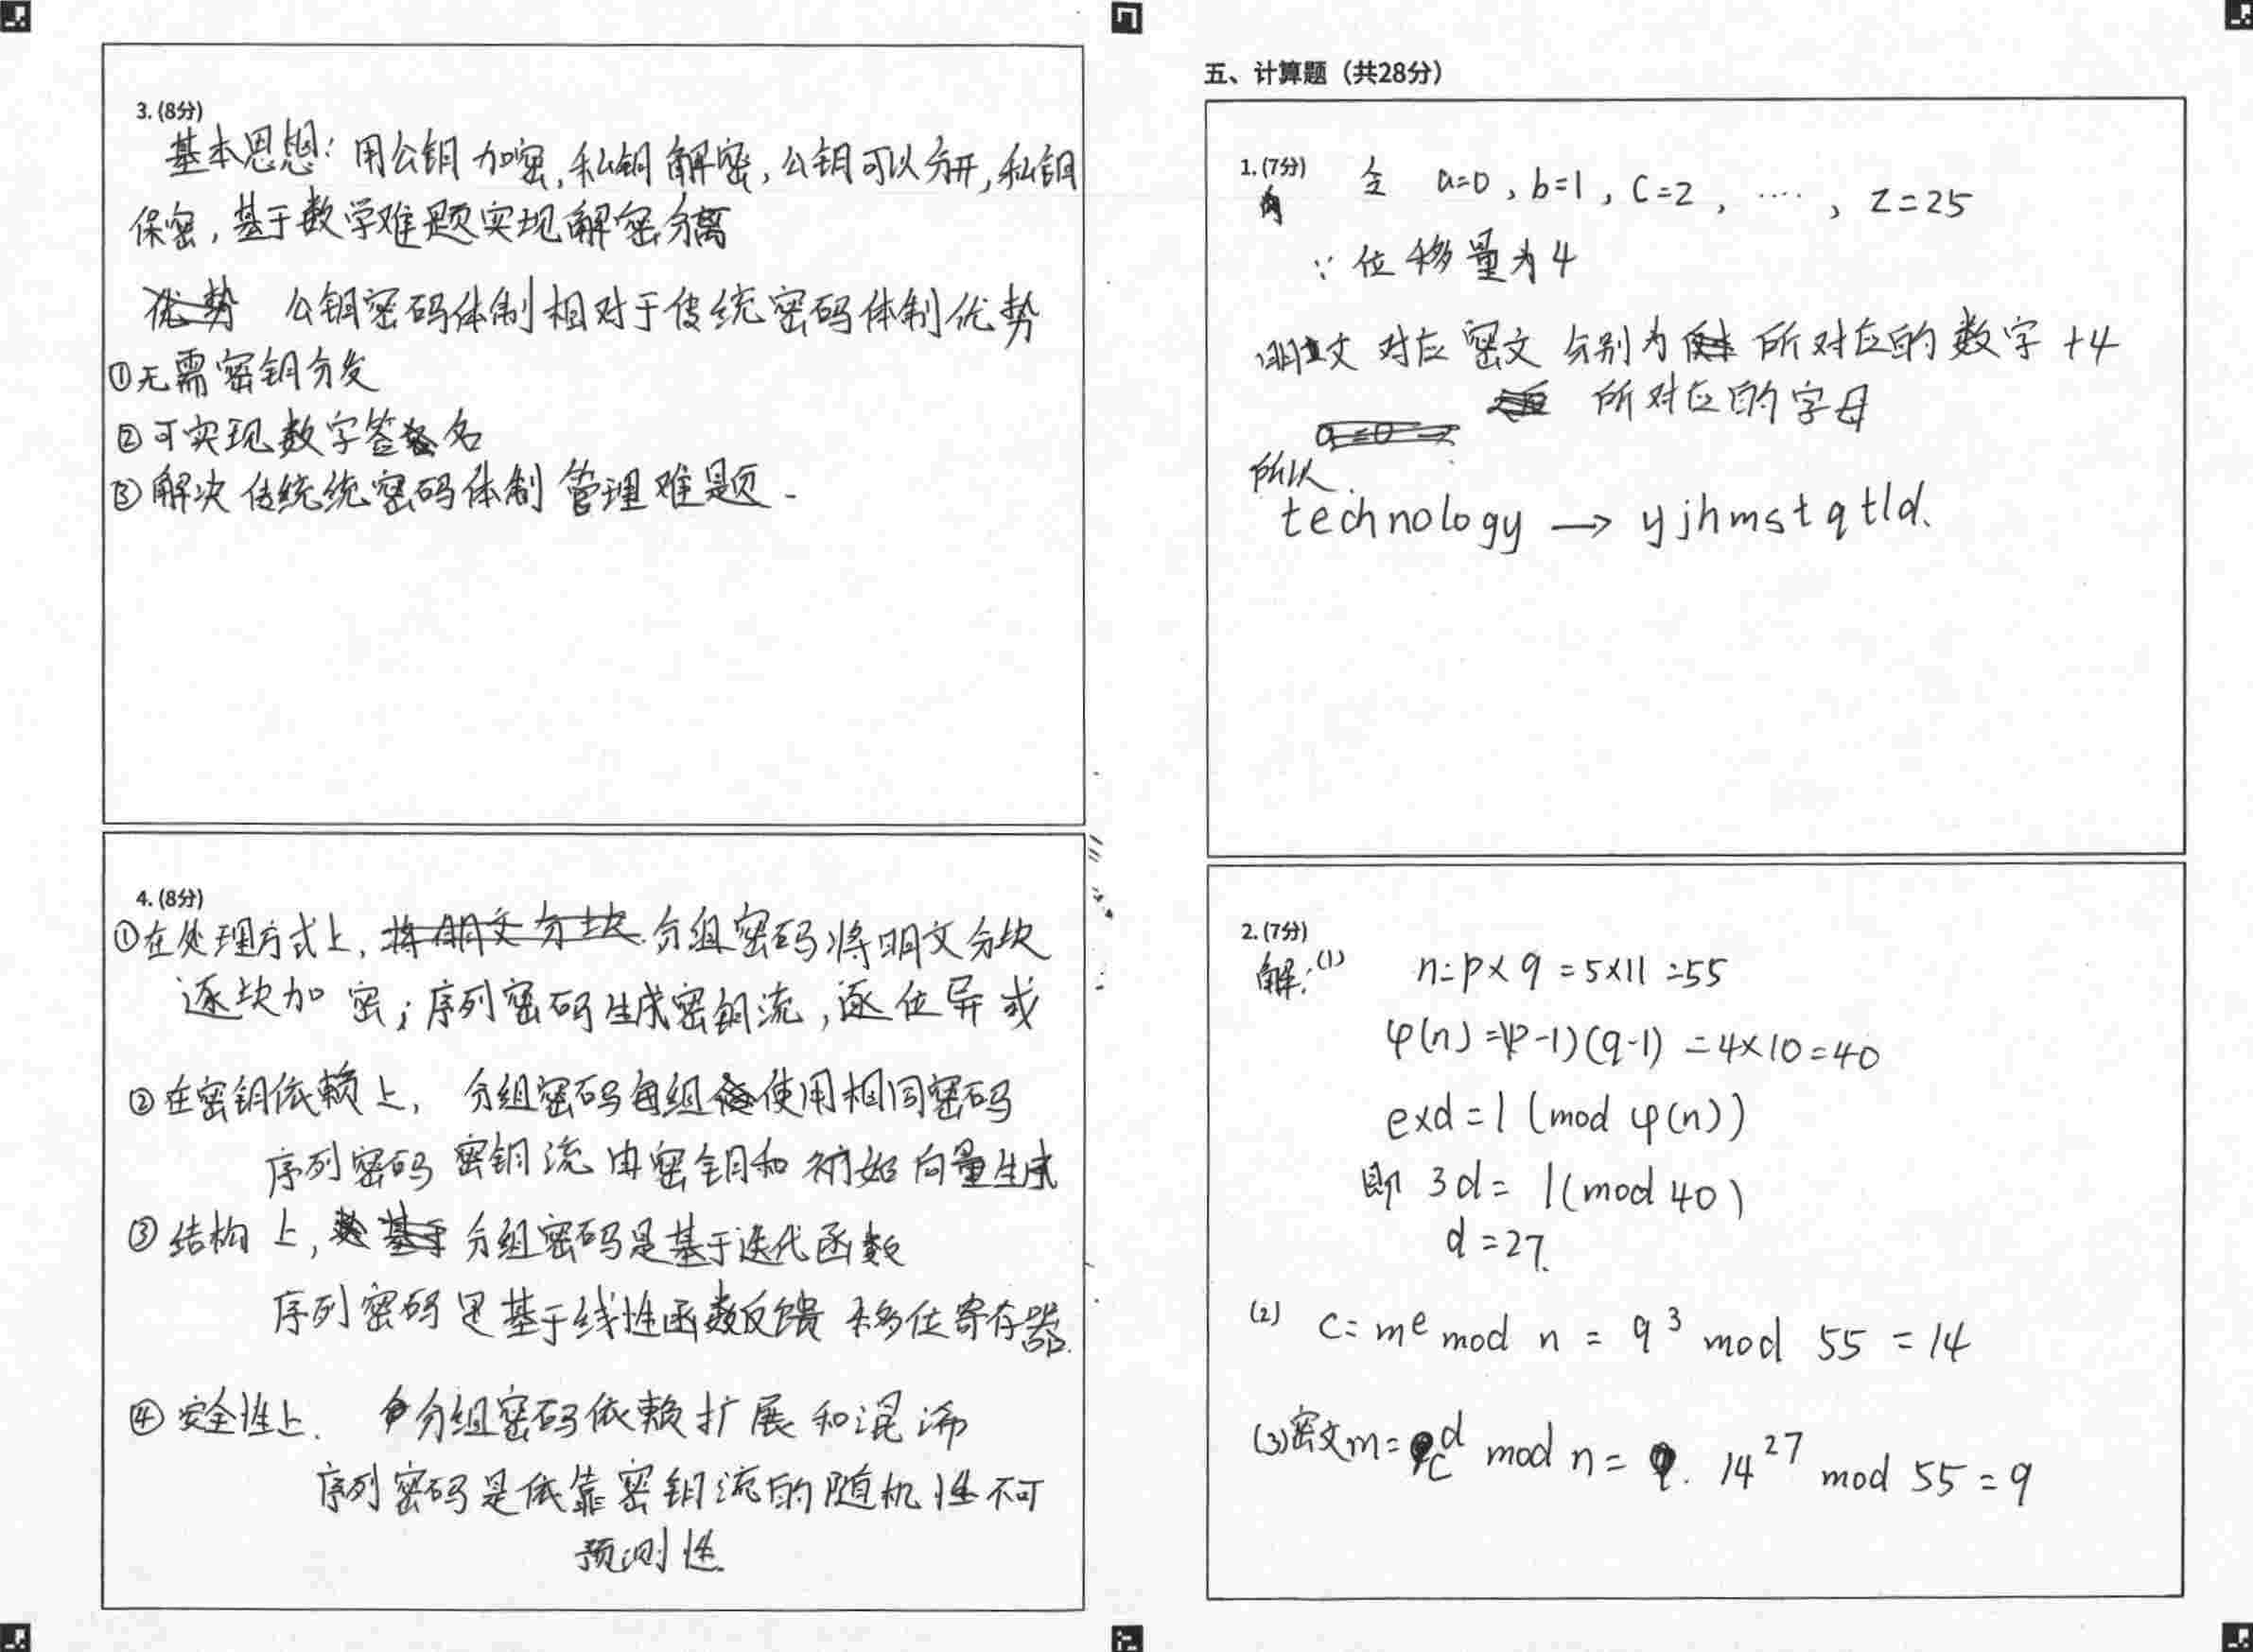 3. (8分)
基本思想：用公钥加密，私钥解密，公钥可以分开，私钥
保密，基于数学难题实现解密分离
公钥密码体制相对于传统密码体制优势
①无需密钥分发
②可实现数字签名
③解决传统统密码体制管理难题.
4. (8分)
①在处理方式上，将明文分块 分组密码将明文分块
逐块加密；序列密码生成密钥流，逐位异或
②在密钥依赖上，分组密码每组使用相同密码
序列密码 密钥流由密钥和初始向量生成
③结构上，分组密码是基于迭代函数
序列密码是基于线性函数反馈移位寄存器.
④安全性上. 分组密码依赖扩展和混淆
序列密码是依靠密钥流的随机性不可
预测性.
五、计算题（共28分）
1. (7分)
令 a=0, b=1, c=2, ····, z=25
∵位移量为4
明文对应密文分别为 所对应的数字+4
所对应的字母
所以.
technology → yjhmstqtld.
2. (7分)
解：(1) n=p×q=5×11=55
φ(n)=(p-1)(q-1)=4×10=40
e×d=1(mod φ(n))
即 3d=1(mod 40)
d=27.
(2) c=m^e mod n = 9^3 mod 55 = 14
(3)密文m=c^d mod n = 14^27 mod 55 = 9